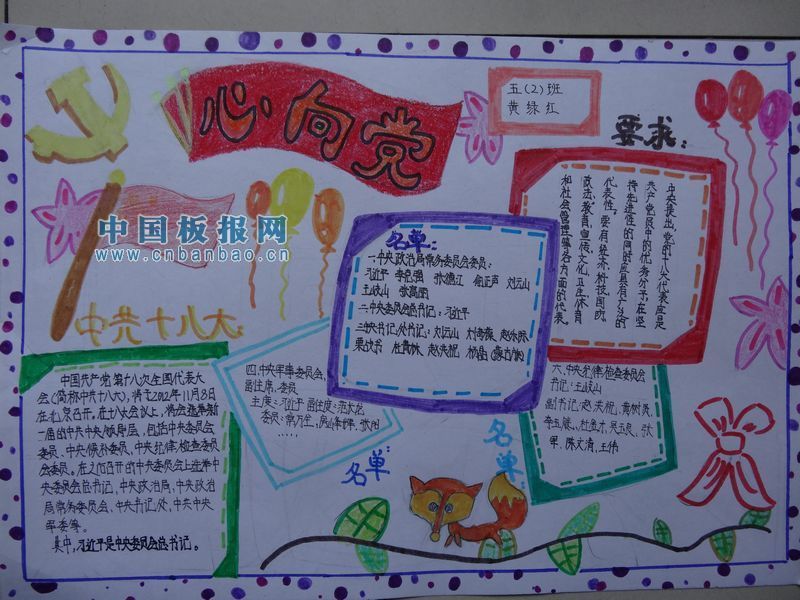 心向党
五(2)班
黄绿红
要求:
中央提出,党的十八大代表应是
共产党员中的优秀分子,在坚
持先进性的同时应具有广泛的
代表性,要有经济、科技、国防、
政法、教育、宣传、文化、卫生、体育
和社会管理等各方面的代表。
中国板报网
www.cnbanbao.cn
名单:
一.中央政治局常务委员会委员:
习近平 李克强 张德江 俞正声 刘云山
王岐山 张高丽
二.中央委员会总书记:习近平
三.中央书记处书记:刘云山 刘奇葆 赵乐际
栗战书 杜青林 赵洪祝 杨晶
中共十八大:
中国共产党第十八次全国代表大
会(简称中共十八大),将于2012年11月8日
在北京召开。在十八大会议上,将会选举新
一届的中共中央领导层,包括中央委员会
委员、中央候补委员、中央纪律检查委员
会委员。在之后召开的中央委员会上选举中
央委员会总书记、中央政治局、中央政治
局常务委员会、中央书记处、中共中央
军委等。
其中,习近平是中央委员会总书记。
四.中央军事委员会,
副主席、委员
主席:习近平 副主席:范长龙
委员:常万全、房峰辉、张阳
……
名单:
六、中央纪律检查委员会
书记:王岐山
副书记:赵洪祝、黄树贤、
李玉赋、杜金才、吴玉良、张
军、陈文清、王伟
名单: